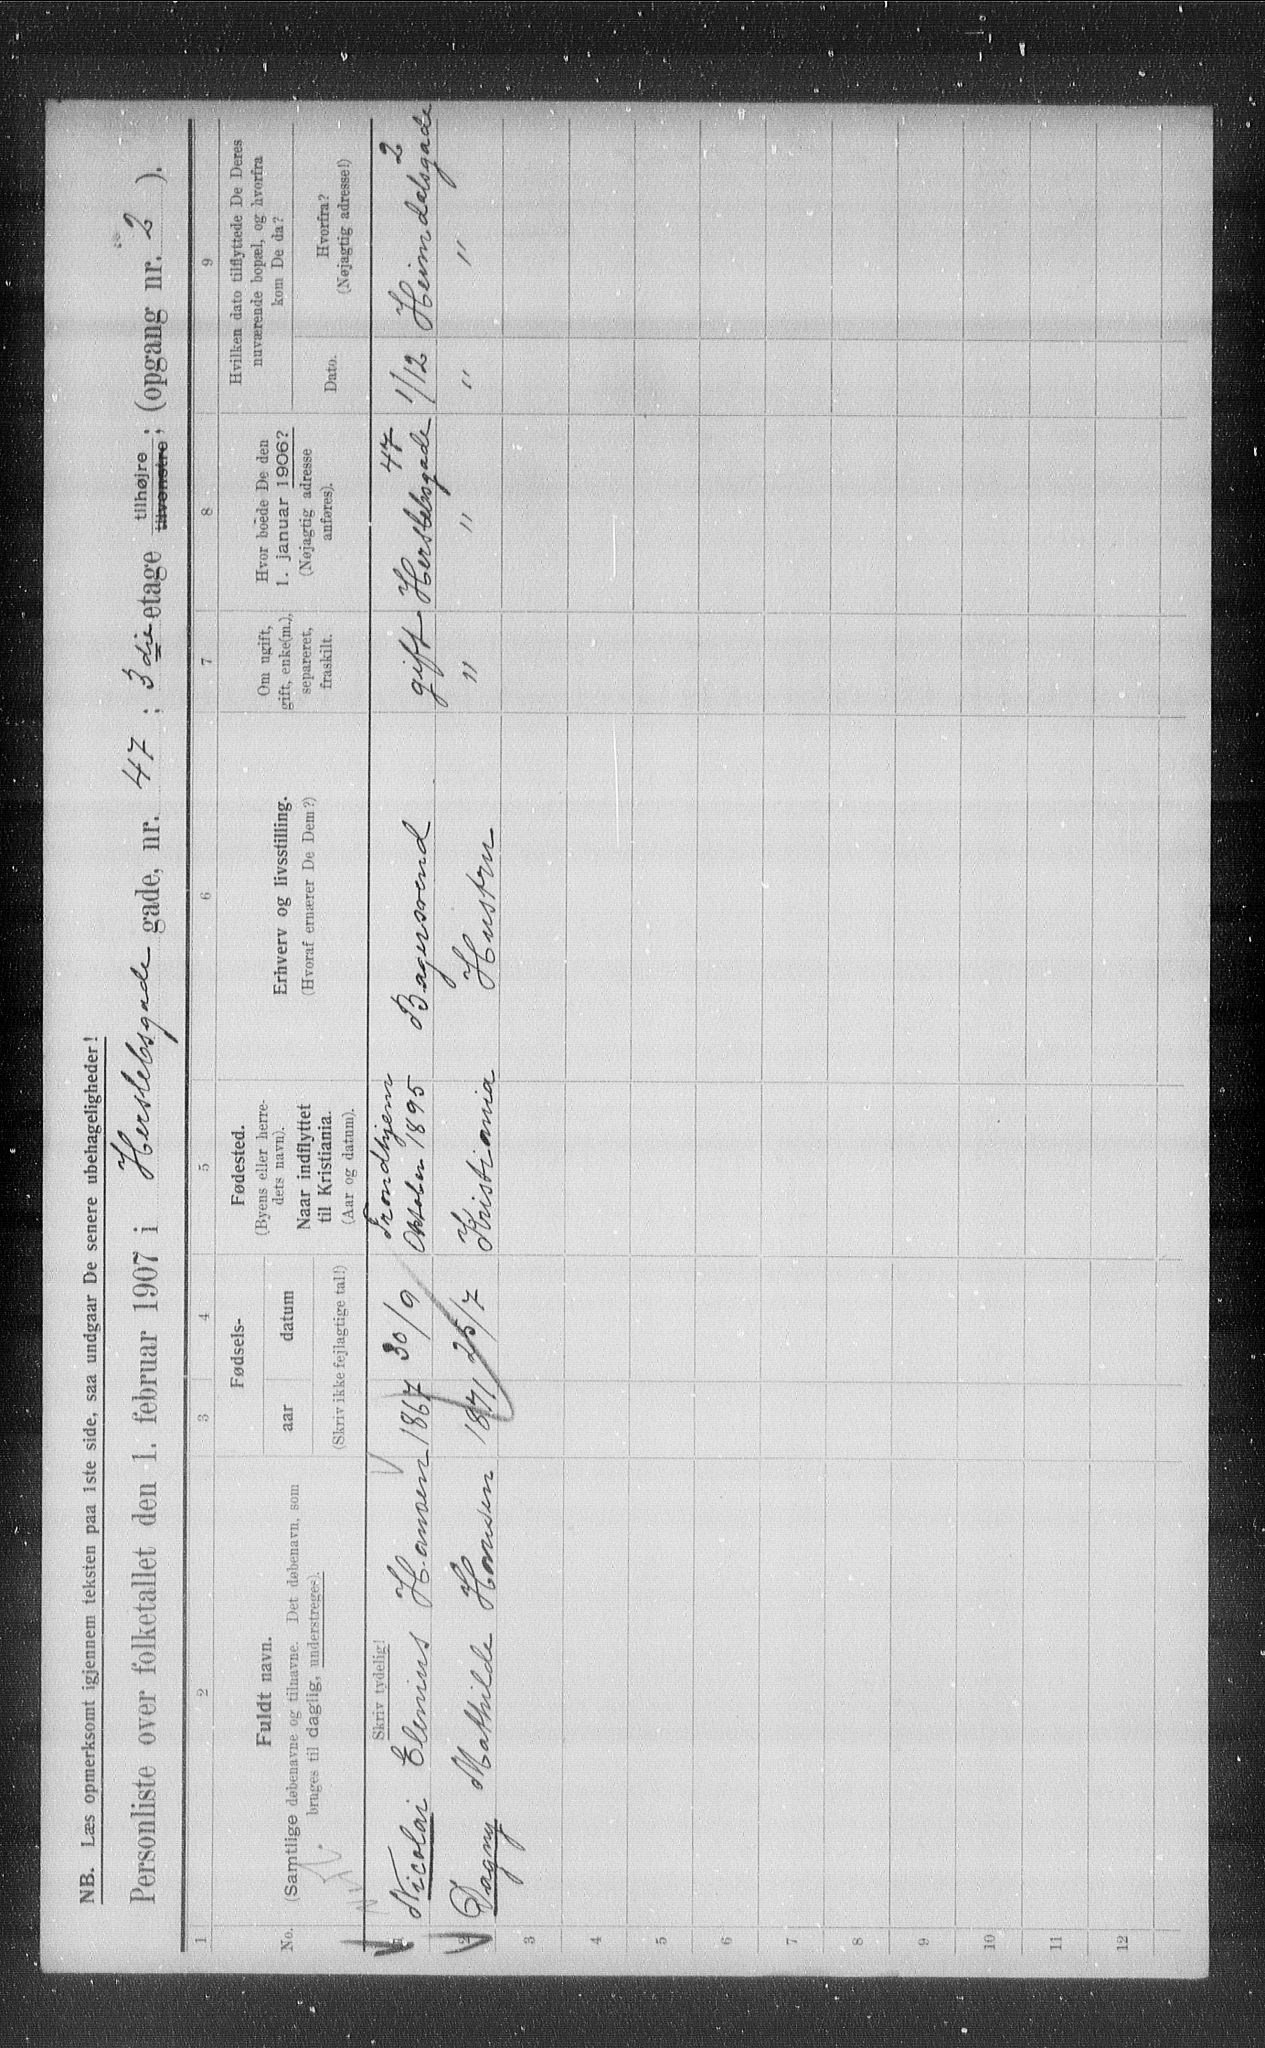 NB. Læs opmerksomt igjennem teksten paa 1ste side, saa undgaar De senere ubehageligheder!
Personliste over folketallet den 1. februar 1907 i Herslebsgade gade, nr. 47 ; 3die etage tilhøjre / tilvenstre ; (opgang nr. 2 ).
1 2 3 4 5 6 7 8 9
No.
Fuldt navn.
(Samtlige døbenavne og tilnavne. Det døbenavn, som
bruges til daglig, understreges).
Fødsels-
aar datum
(Skriv ikke fejlagtige tal!)
Fødested.
(Byens eller herre-
dets navn).
Naar indflyttet
til Kristiania.
(Aar og datum).
Erhverv og livsstilling.
(Hvoraf ernærer De Dem?)
Om ugift,
gift, enke(m.),
separeret,
fraskilt.
Hvor boede De den
1. januar 1906?
(Nøjagtig adresse
anføres).
Hvilken dato tilflyttede De Deres
nuværende bopæl, og hvorfra
kom De da?
Dato.
Hvorfra?
(Nøjagtig adresse!)
Skriv tydelig!
Trondhjem 47 2
1 Nicolai Elenius Hansen 1867 30/9 Oktober 1895 Bagersvend gift Herslebsgade 1/12 Heimdalsgade
2 Dagny Mathilde Hansen 1871 25/7 Kristiania Hustru " " " "
3
4
5
6
7
8
9
10
11
12